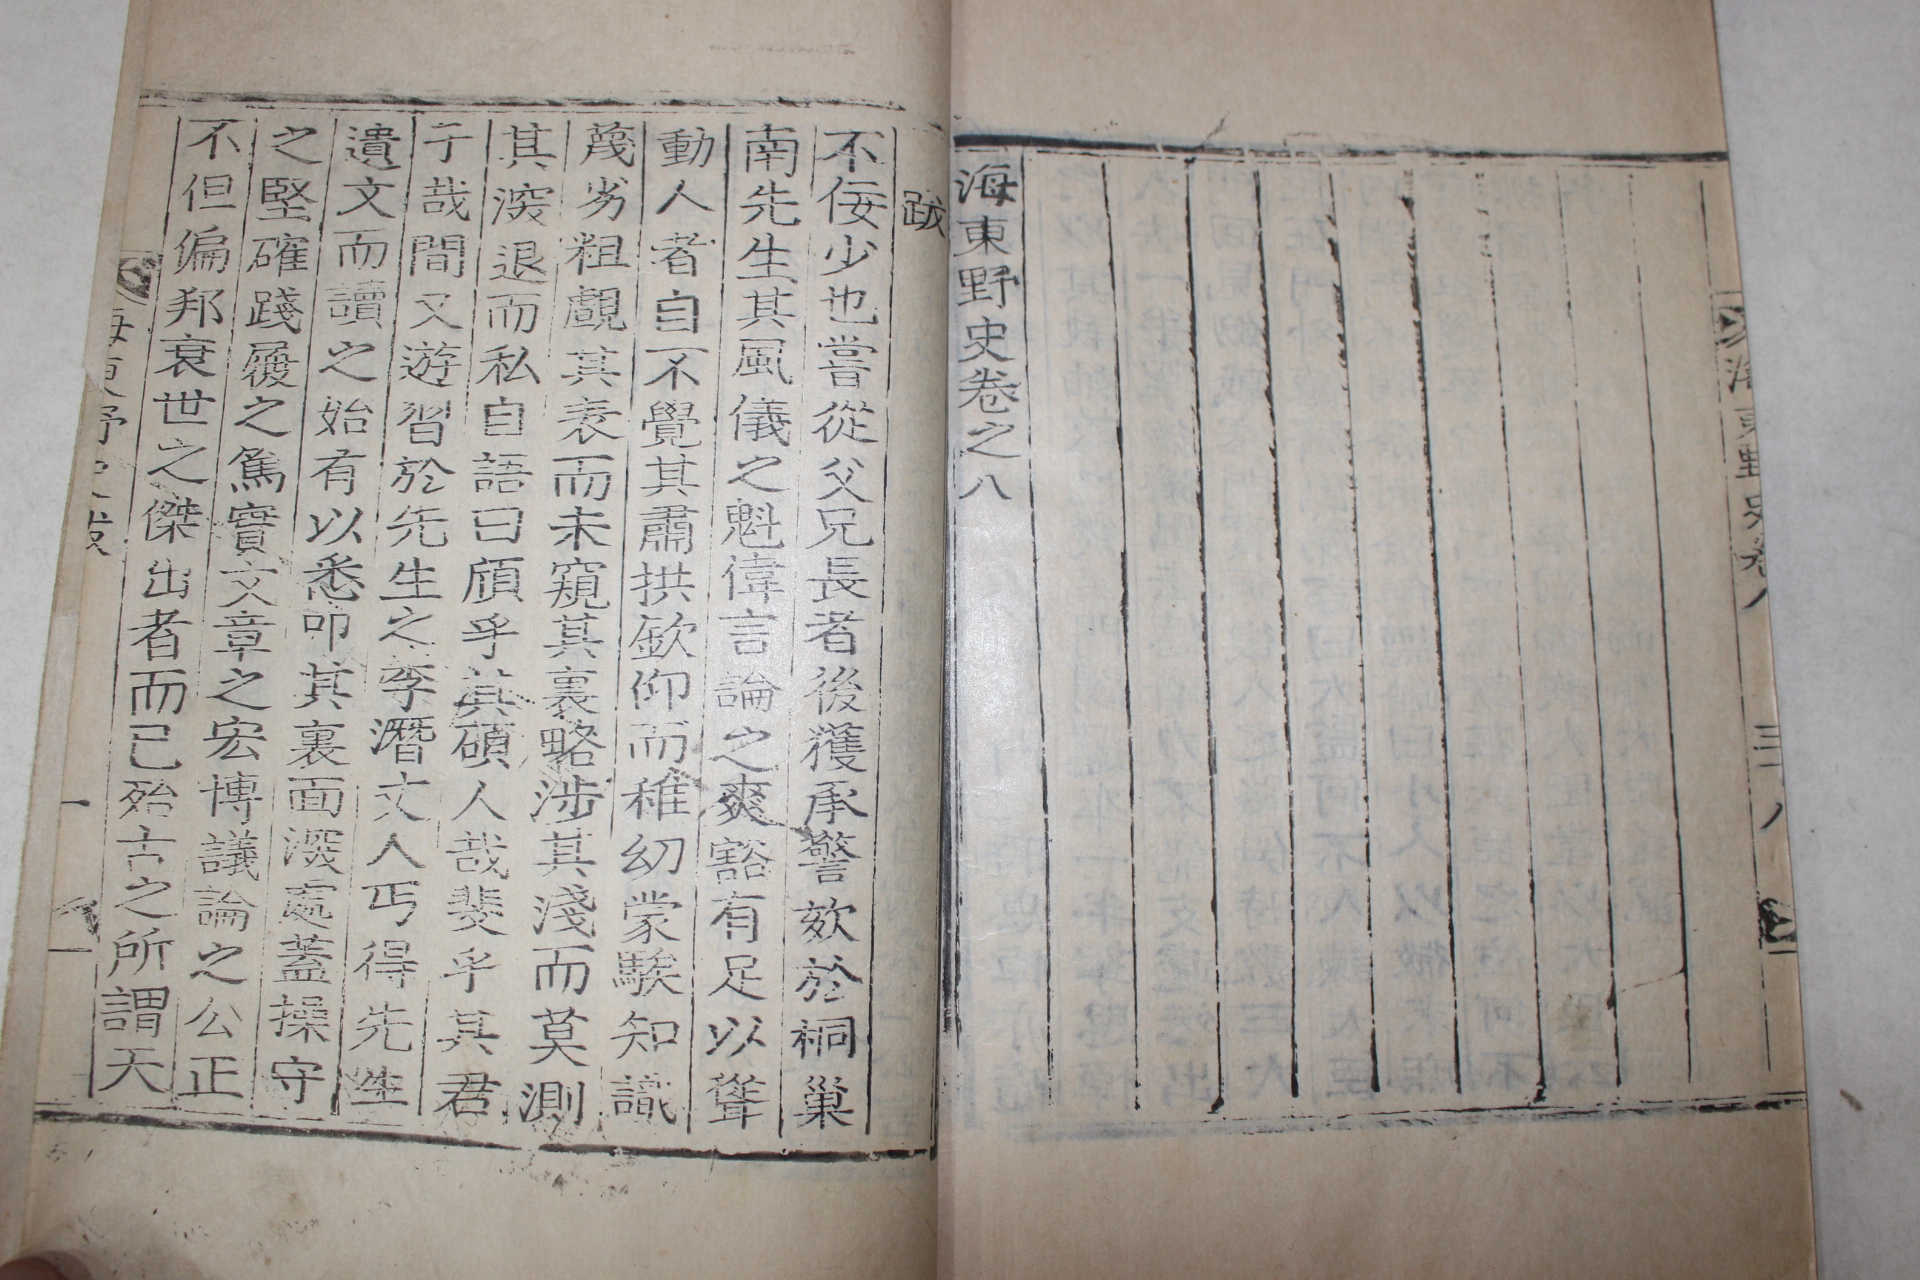 海東野史卷之八
海東野史卷八
三十八
跋
不佞少也嘗從父兄長者後獲承警欬於桐巢
南先生其風儀之魁偉言論之爽豁有足以聳
動人者自不覺其肅拱欽仰而稚幼蒙騃知識
蔑劣粗覿其表而未窺其裏略涉其淺而莫測
其深退而私自語曰頎乎其碩人哉斐乎其君
子哉間又遊習於先生之季潛文人丐得先生
遺文而讀之始有以悉叩其裏面深處蓋操守
之堅確踐履之篤實文章之宏博議論之公正
不但偏邦衰世之傑出者而已殆古之所謂天
海東野史跋
一